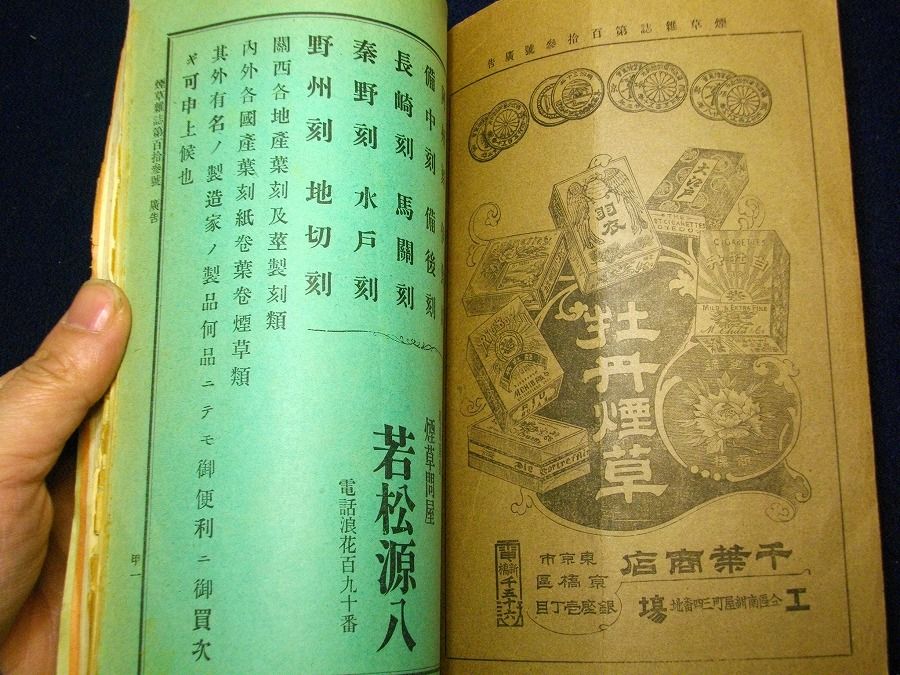 煙草雜誌第百拾參號廣吿
大江戸
羽衣
CIGARETTES
MILD & EXTRA FINE
牡丹煙草
商標
千葉商店
東京市
京橋區
銀座壱丁目
新橋
千五十六
工場
仝區南紺屋町三四番地
備中刻 備後刻
長崎刻 馬關刻
秦野刻 水戶刻
野州刻 地切刻
關西各地產葉刻及莖製刻類
內外各國產葉刻紙卷葉卷煙草類
其外有名ノ製造家ノ製品何品ニテモ御便利ニ御買次
ギ可申上候也
煙草問屋
若松源八
電話浪花百九十番
煙草雜誌第百拾參號 廣吿
甲一